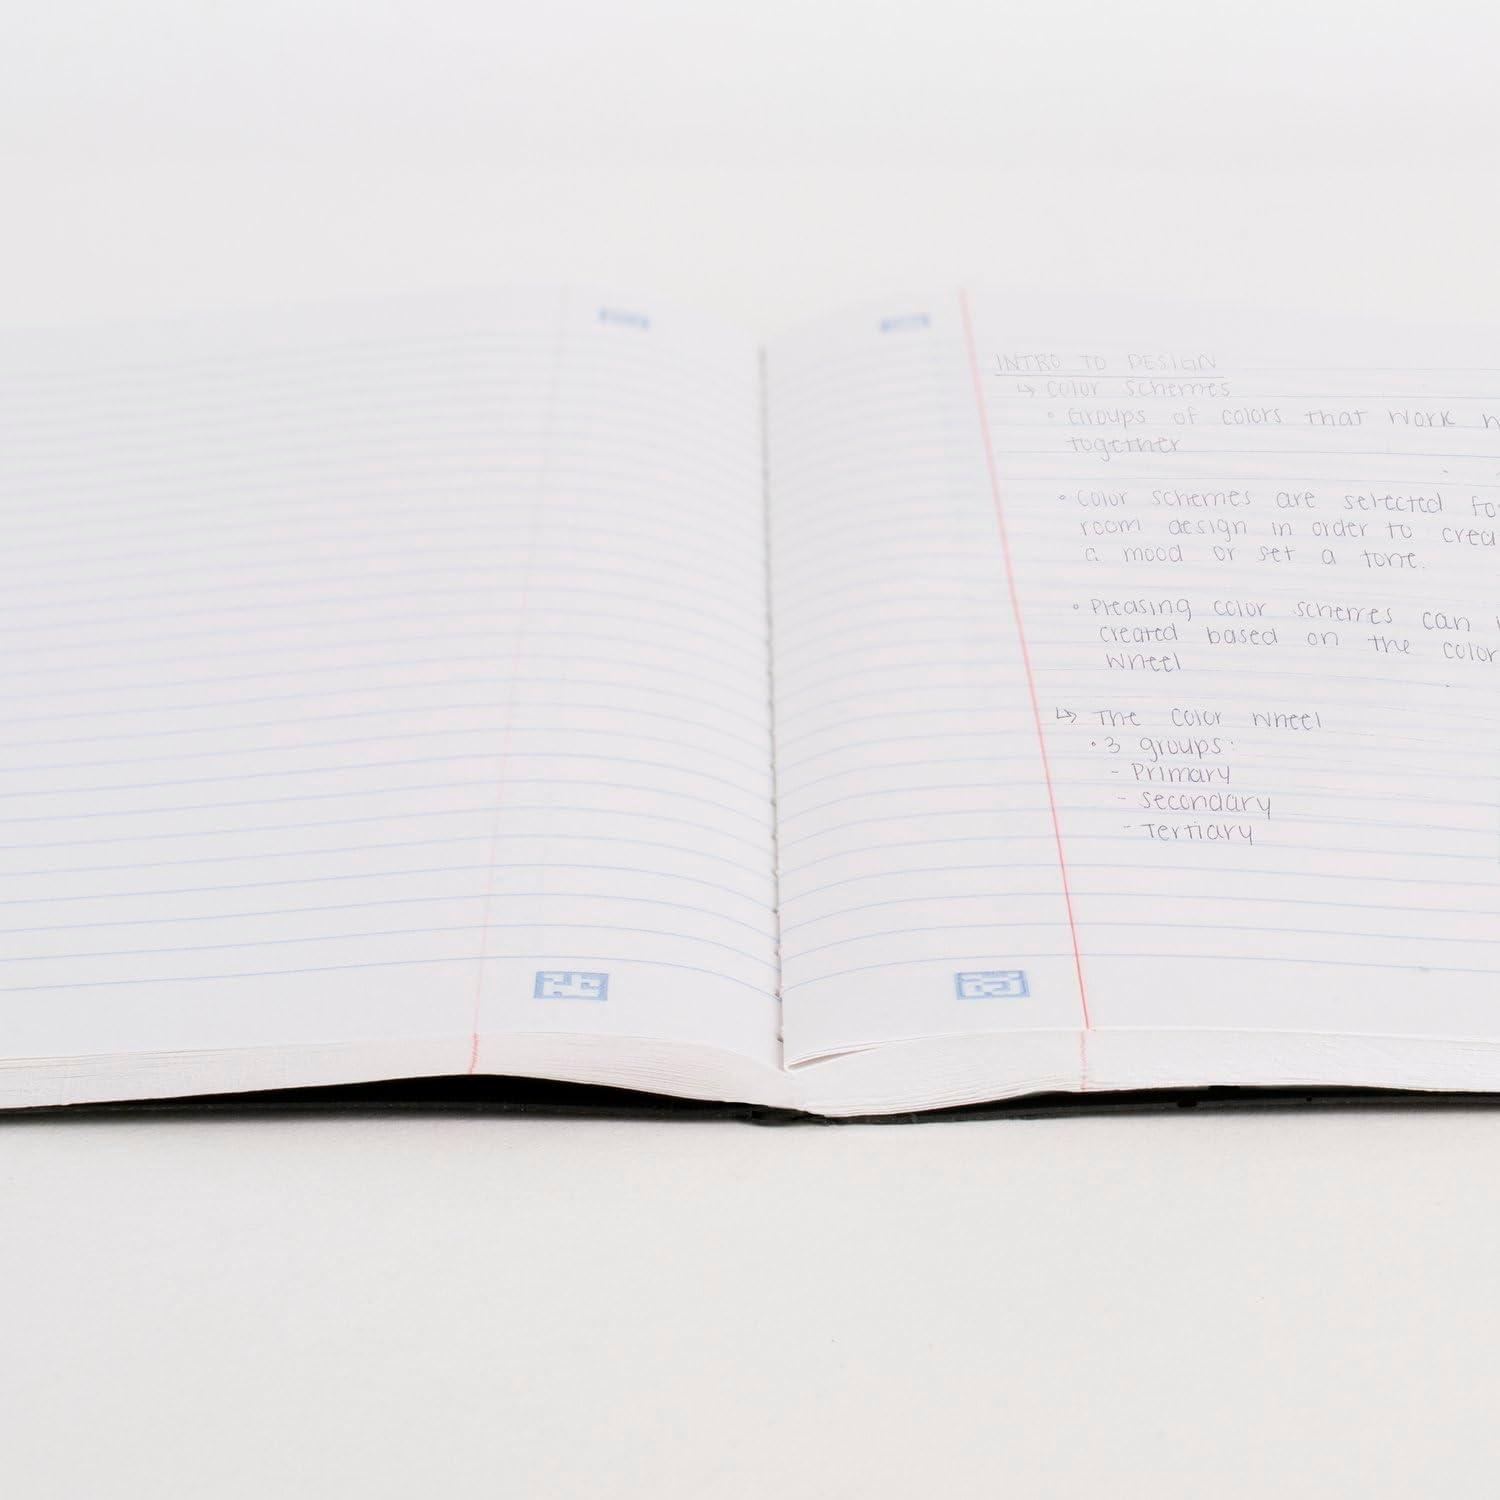 INTRO TO DESIGN
↳ Color Schemes
• Groups of colors that work
together
• Color schemes are selected
room design in order to
a mood or set a tone.
• Pleasing color schemes can
created based on the color
wheel
↳ The Color Wheel
• 3 groups:
- Primary
- Secondary
- Tertiary